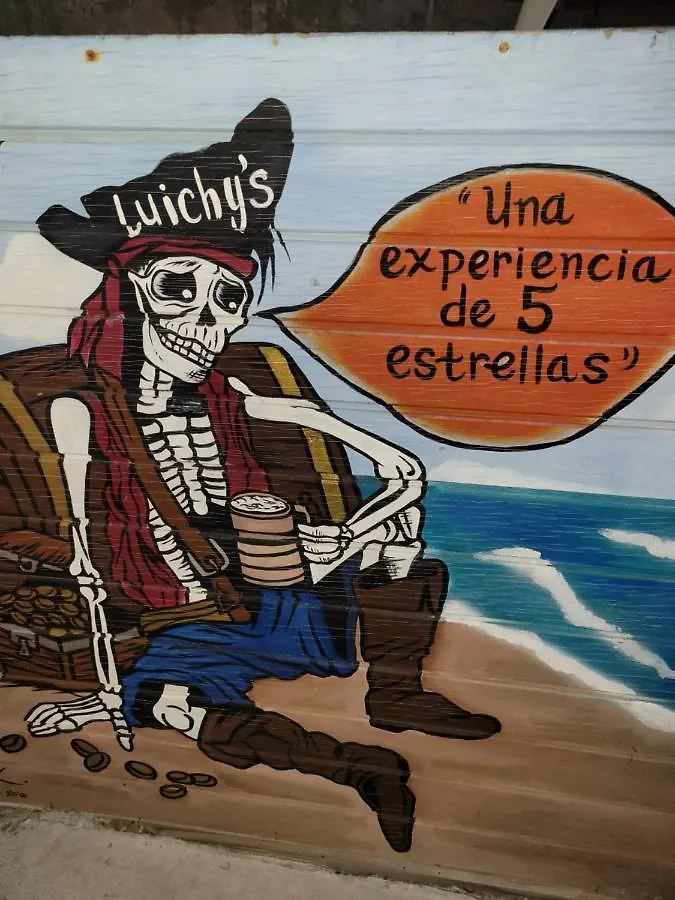 Luichy's
"Una
experiencia
de 5
estrellas"